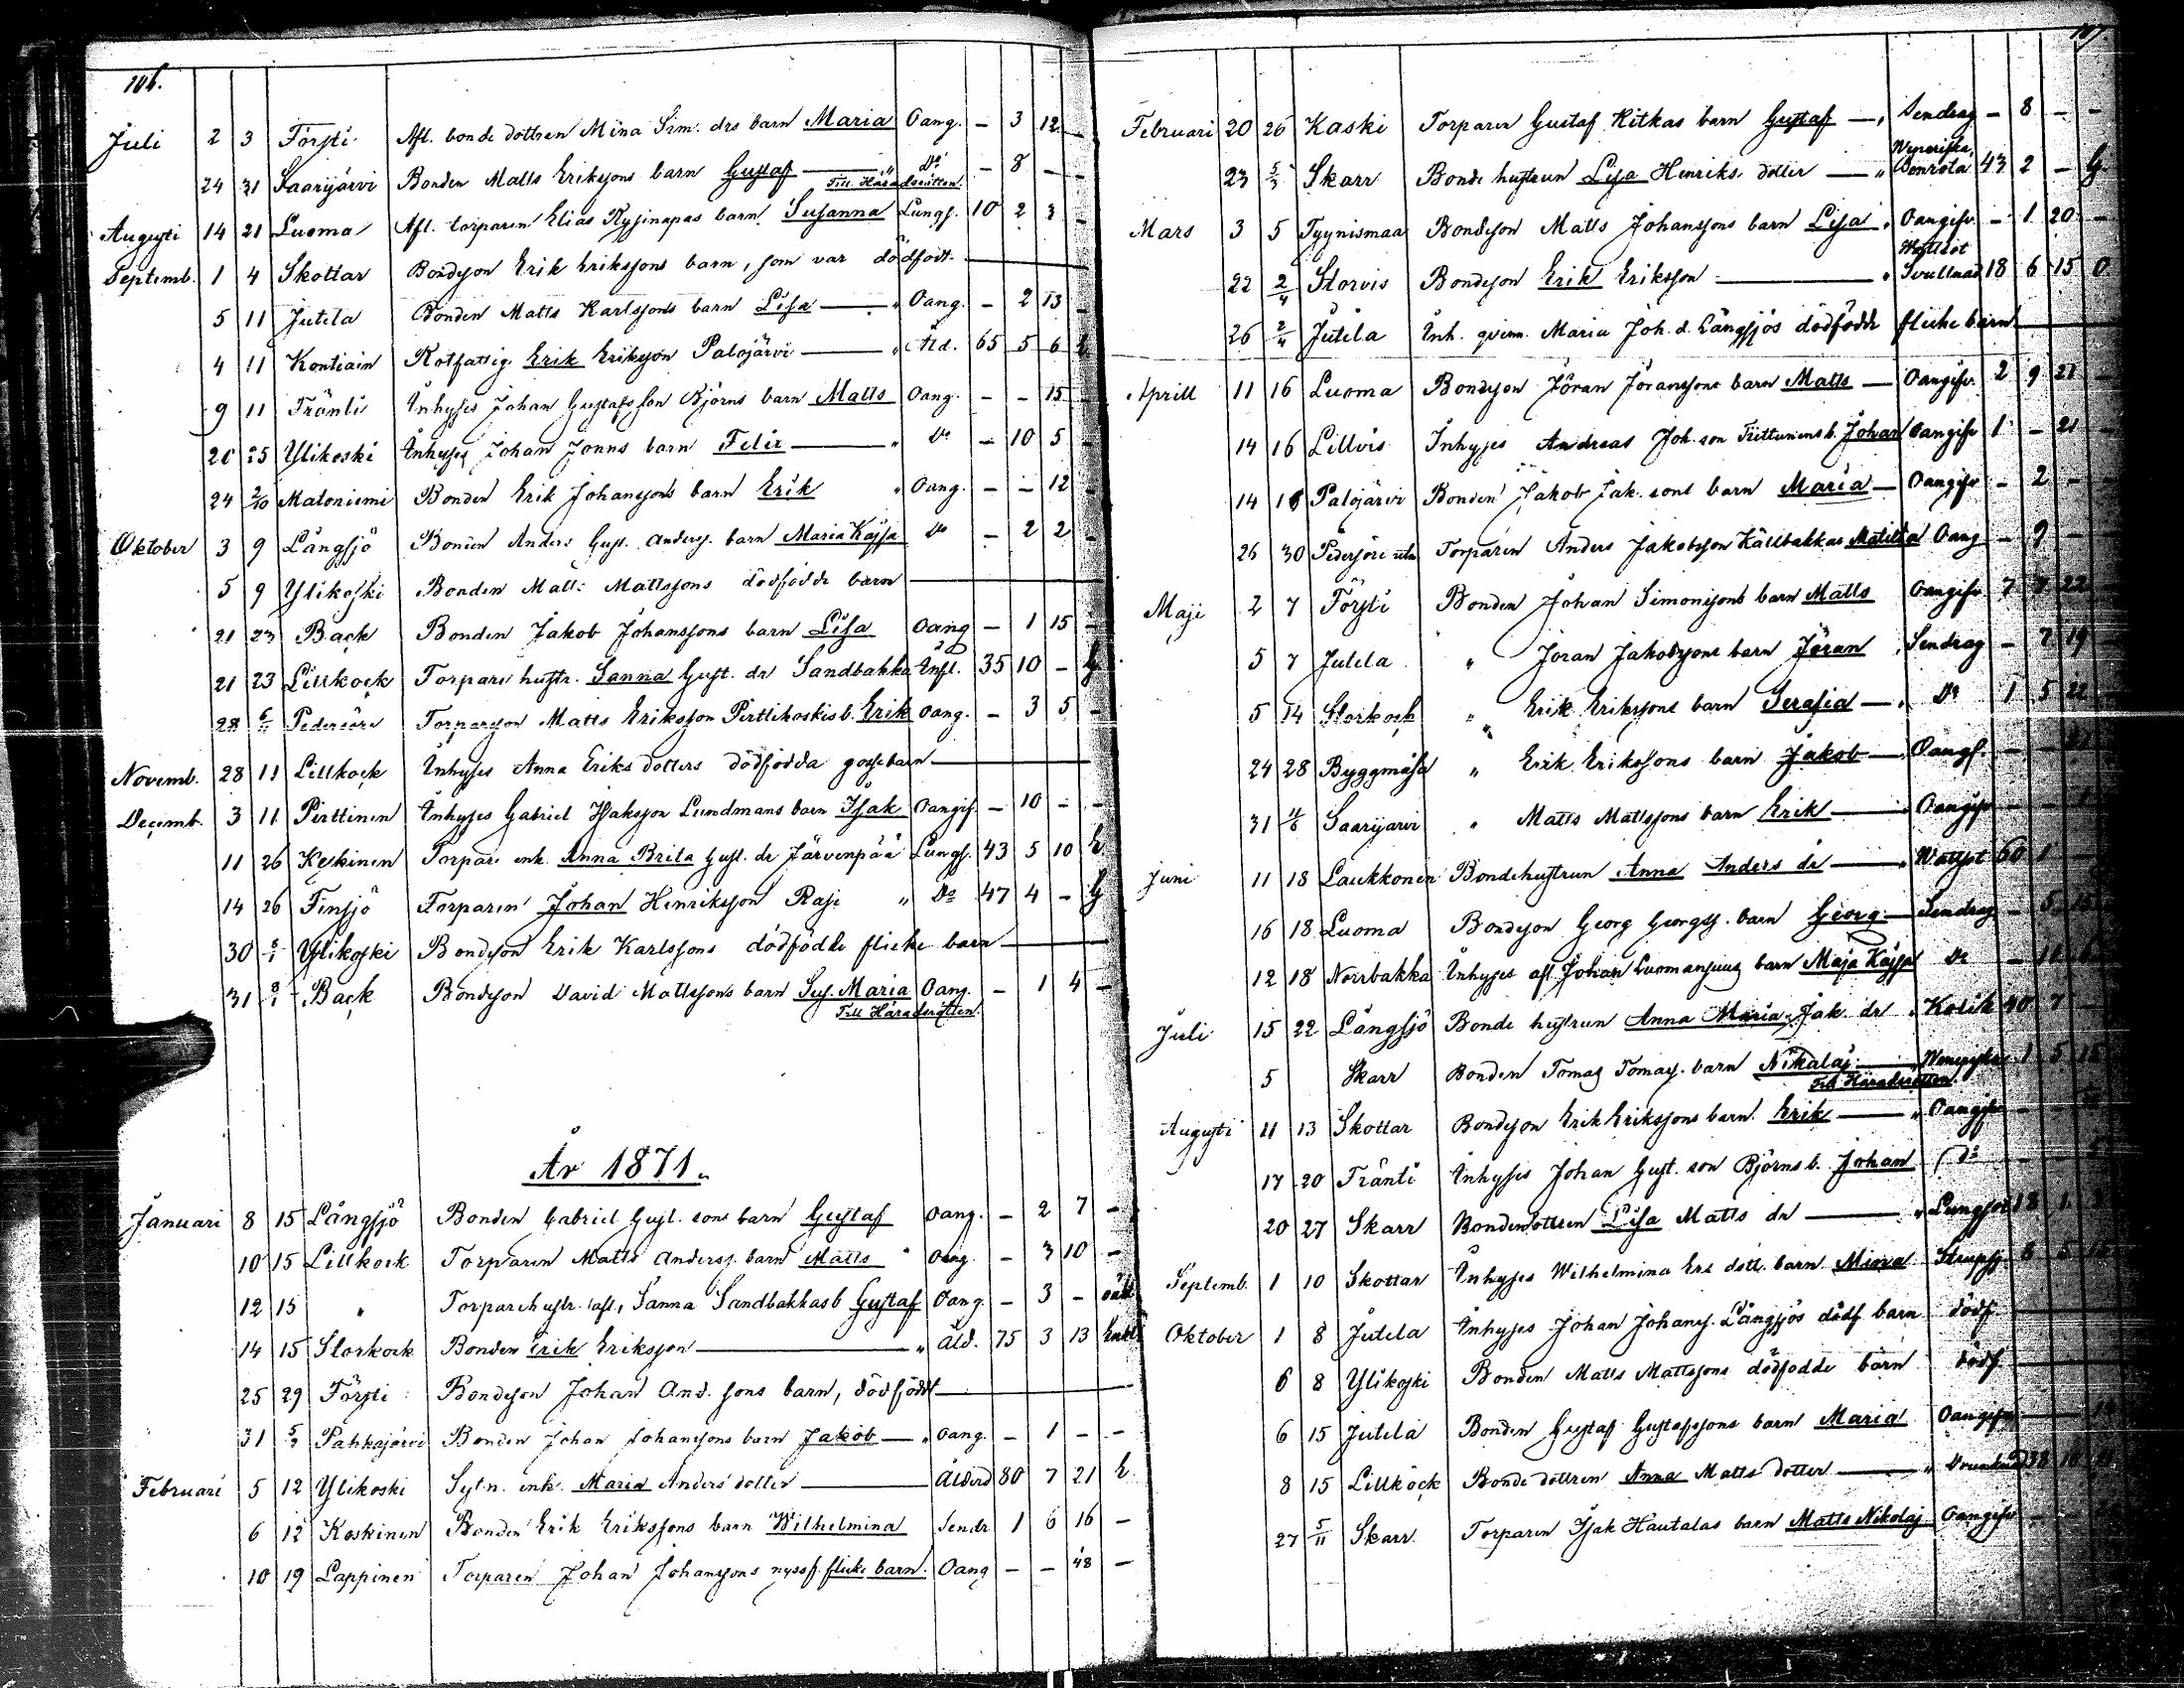 106.
Juli 2 3 Försti Afl. bonde dottren Mina Sim. drs barn Maria Oang. - 3 12 -
24 31 Saarijärvi Bonden Matts Eriksons barn Gustaf — " Do - 8 - -
Till Häradsrätten.
Augusti 14 21 Luoma Afl. torparen Elias Rysinapas barn Susanna Lungs. 10 2 3 -
Septemb. 1 4 Skottar Bondeson Erik Erikssons barn, som var dödfödt. —
5 11 Jutila Bonden Matts Karlssons barn Lisa — " Oang. - 2 13 -
4 11 Kontiain Rotfattig Erik Erikson Palojärvi — " Åld. 65 5 6
9 11 Tränti Inhyses Johan Gustafsson Björns barn Matts Oang. - - 15 -
20 25 Ylikoski Inhyses Johan Jonns barn Felix — " Do - 10 5 -
24 2/10 Matoniemi Bonden Erik Johanssons barn Erik " Oang. - - 12 -
Oktober 3 9 Långsjö Bonden Anders Gust. anders. barn Maria Kajsa Do - 2 2 -
5 9 Ylikoski Bonden Matts Mattssons dödfödde barn —
21 23 Back Bonden Jakob Johanssons barn Lisa Oang - 1 15 -
21 23 Lillkock Torpare hustr. Sanna Gust. dr Sandbakka Infl. 35 10 - G
28 6/11 Pedersöre Torpareson Matts Eriksson Pirttikoskis b. Erik Oang. - 3 5 -
Novemb. 28 11 Lillkock Inhyses Anna Eriks dotters dödfödda gossebarn —
Decemb. 3 11 Pirttinen Inhyses Gabriel Isaksson Lundmans barn Isak Oangif. - 10 - -
11 26 Keskinen Torpare enk. Anna Brita Gust. dr Järvenpää Lungs. 43 5 10 E
14 26 Finsjö Torparen Johan Henrikson Raje " Do 47 4 - G
30 8/1 Ylikoski Bondeson Erik Karlssons dödfödde flicke barn —
31 8/1 Back Bondeson David Mattssons barn Sus. Maria Oang. - 1 4 -
Till Häradsrätten.
År 1871.
Januari 8 15 Långsjö Bonden Gabriel Gust. sons barn Gustaf Oang. - 2 7 -
10 15 Lillkock Torparen Matts Anderss. barn Matts " Oang. - 3 10 -
12 15 " Torparehustr. afl. Sanna Sandbakkas b Gustaf Oang. - 3 -
14 15 Storkock Bonden Erik Eriksson — " Åld. 75 3 13 Enkl.
25 29 Försti Bondeson Johan And. sons barn, dödfödt —
31 5/2 Pahkajärvi Bonden Johan Johanssons barn Jakob — " Oang. - 1 - -
Februari 5 12 Ylikoski Sytn. enk. Maria Anders dotter — Ålderd 80 7 21 E
6 12 Koskinen Bonden Erik Erikssons barn Wilhelmina Sendr 1 6 16 -
10 19 Lappinen Torparen Johan Johanssons nyssf. flicke barn. Oang - - 48 -
107.
Februari 20 26 Kaski Torparen Gustaf Ritkas barn Gustaf — " Sendrag - 8 - -
23 5/3 Skarr Bonde hustrun Lisa Henriks dotter — " Weneriska Benröta 43 2 - G.
Mars 3 5 Tyynismaa Bondeson Matts Johanssons barn Lisa " Oangifv. - 1 20 -
22 2/4 Storvis Bondeson Erik Eriksson — " Wattsot Svullnad 18 6 15 O
26 2/4 Jutila Inh. qvinn. Maria Joh. d. Långsjös dödfödde flicke barn —
Aprill 11 16 Luoma Bondeson Jöran Jöranssons barn Matts — Oangifv. 2 9 21 -
14 16 Lillvis Inhyses Andreas Joh. son Tiittunens b. Johan Oangifv 1 - 21 -
14 16 Palojärvi Bonden Jakob Jak. sons barn Maria — Oangifv - 2 - -
26 30 Pedersöre Torparen Anders Jakobsson Källbakkas Matilda Oang - 9 - -
Maji 2 7 Försti Bonden Johan Simonssons barn Matts Oangifv 7 7 22
5 7 Jutila " Jöran Jakobsons barn Jöran " Sendrag - 7 19
5 14 Storkock " Erik Eriksons barn Serafia — " Do 1 5 22
24 28 Byggmäsa " Erik Erikssons barn Jakob — " Oangf. - -
31 11/6 Saarijärvi " Matts Mattssons barn Erik — Oangifv - -
Juni 11 18 Laukkonen Bondehustrun Anna Anders dr — " Wattsot 60 1 -
16 18 Luoma Bondeson Georg Georgss. barn Georg — Sendrag - 5 15
12 18 Norrbakka Inhyses afl. Johan Luomansuus barn Maja Kajsa Do -
Juli 15 22 Långsjö Bonde hustrun Anna Maria Jak. dr " Kolik 40 7 -
5 Skarr Bonden Tomas Tomass. barn Nikolaj — " Weneriska 1 5 15
Till Häradsrätten.
Augusti 11 13 Skottar Bondeson Erik Erikssons barn Erik — " Oangifv
17 20 Tränti Inhyses Johan Gust. son Björns b. Johan Do
20 27 Skarr Bondedottren Lisa Matts dr — " Lungsot 18 1
Septemb. 1 10 Skottar Inhyses Wilhelmina Ers dott. barn Mina Strupsj. 8 5
Oktober 1 8 Jutila Inhyses Johan Johans. Långsjös dödf barn dödf —
6 8 Ylikoski Bonden Matts Mattssons dödfödde barn dödf —
6 15 Jutila Bonden Gustaf Gustafssons barn Maria Oangifv —
8 15 Lillkock Bonde dottren Anna Matts dotter — " Drunknad 38 10
27 5/11 Skarr Torparen Isak Hautalas barn Matts Nikolaj Oangifv